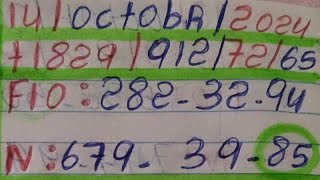 14/OctobR/2024
+1829/912/72/65
F10:282-32-94
N:679-39-85